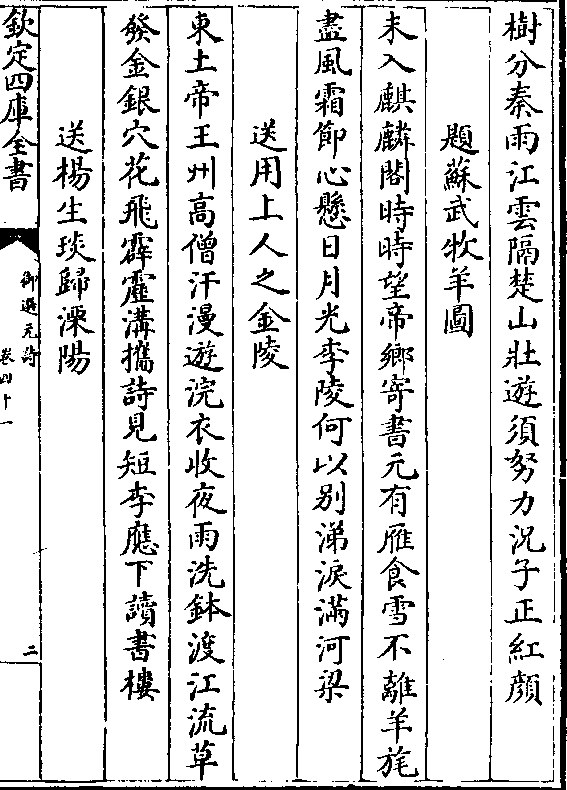 樹分秦雨江雲隔楚山壯遊須努力況子正紅顏
題蘇武牧羊圖
未入麒麟閣時時望帝鄉寄書元有雁食雪不離羊旄
盡風霜節心懸日月光李陵何以别涕淚滿河梁
送用上人之金陵
東土帝王州高僧汗漫遊浣衣收夜雨洗鉢渡江流草
發金銀穴花飛霹靂溝攜詩見短李應下讀書樓
送楊生琰歸溧陽
欽定四庫全書
御選元詩
卷四十一
二